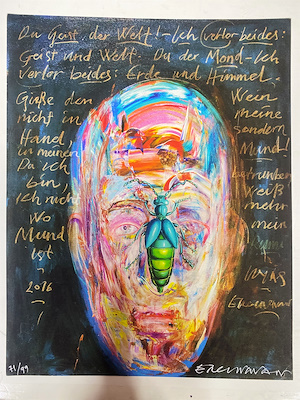 Du Geist der Welt! - Ich verlor beides:
Geist und Welt. Du der Mond - ich
verlor beides: Erde und Himmel.
Gieße den Wein
nicht in meine
Hand, sondern
in meinen Mund!
Da ich betrunken
bin, weiß
ich nicht mehr
wo mein
Mund
ist
2016
71/99